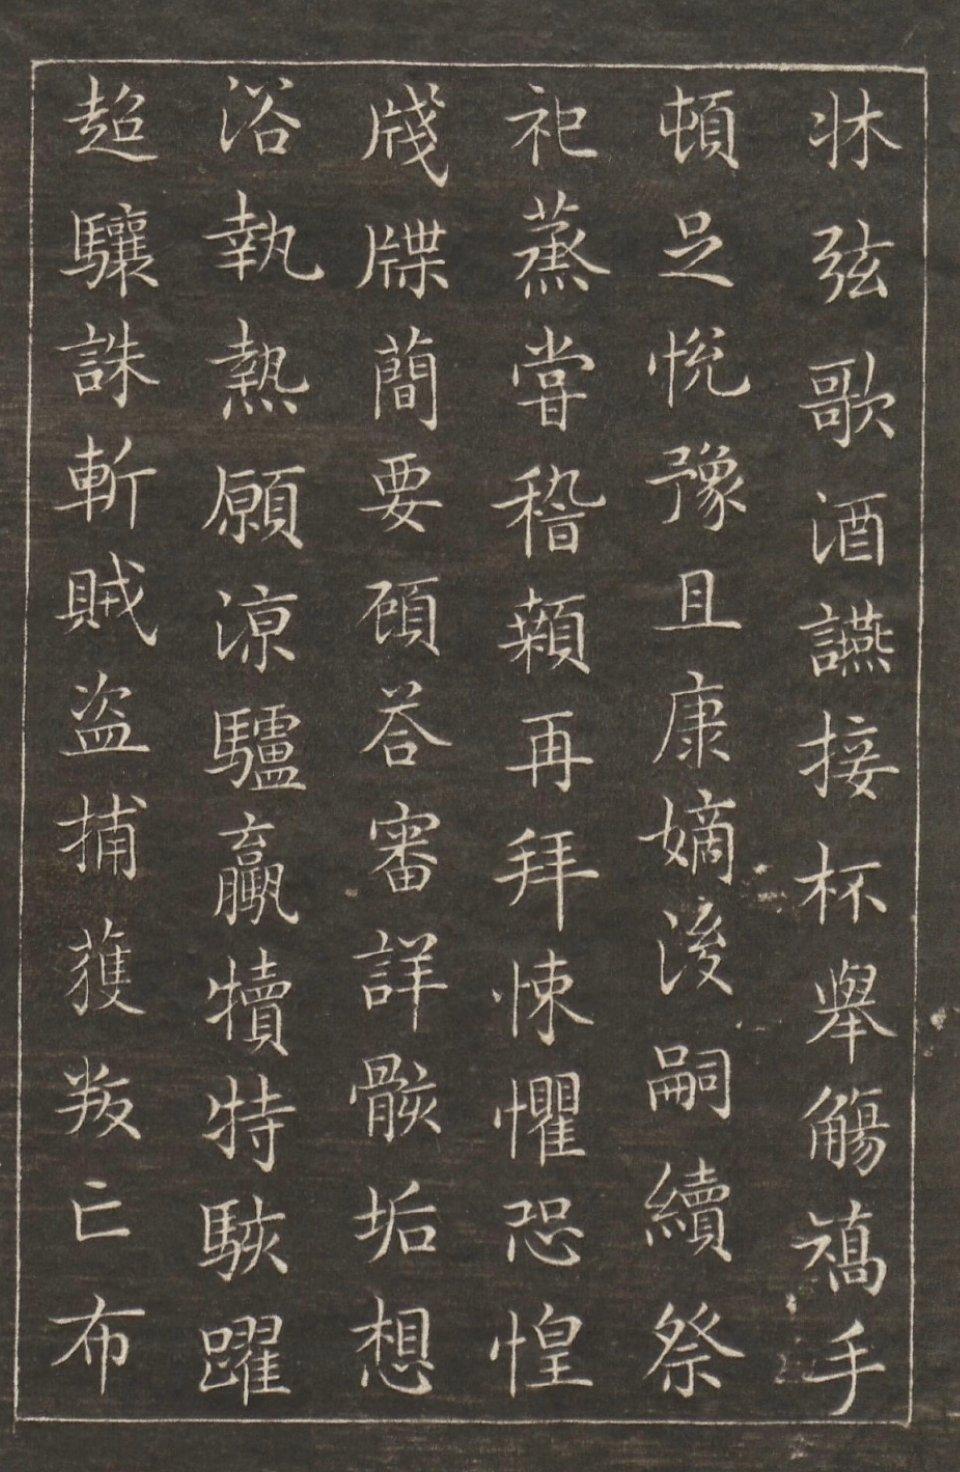 牀弦歌酒讌接杯舉觴矯手
頓足悅豫且康嫡後嗣續祭
祀蒸嘗稽顙再拜悚懼恐惶
牋牒簡要顧荅審詳骸垢想
浴執熱願涼驢騾犢特駭躍
超驤誅斬賊盜捕獲叛亡布